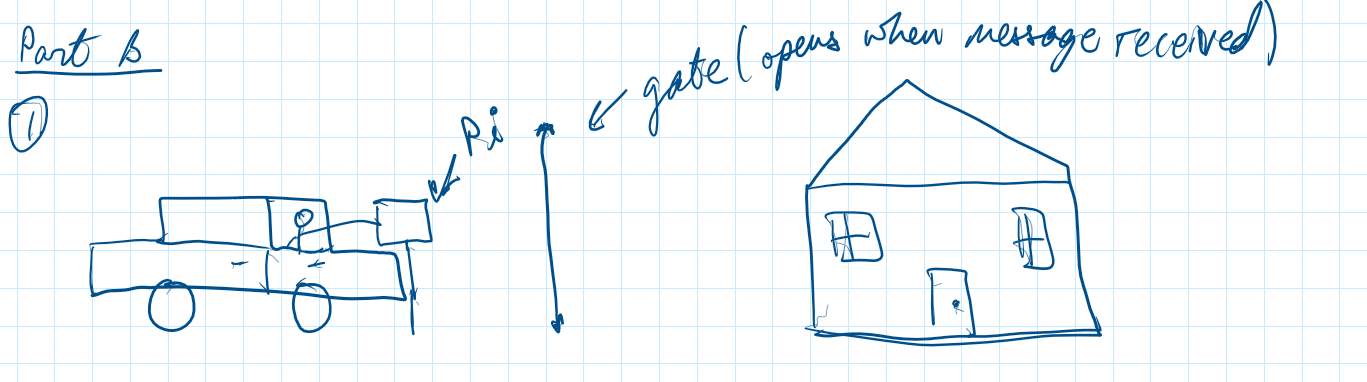 Part B
gate (opens when message received)
①
Pi